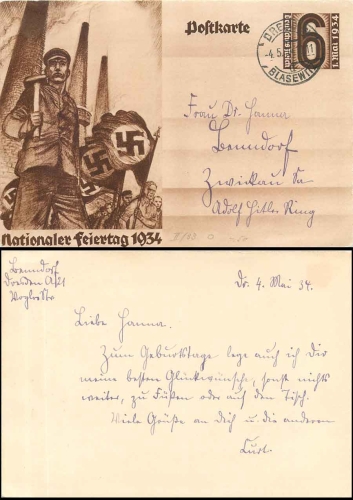 Postkarte
6
1. Mai 1934
BLASEWITZ
Frau Dr. Hanna
Benndorf
Zwickau Sa
Adolf Hitler Ring
Nationaler Feiertag 1934
Benndorf
Dresden
Dr. 4. Mai 34.
Liebe Hanna.
Zum Geburtstage lege auch ich Dir
meine besten Glückwünsche, sonst nichts
weiter, zu Füßen oder auf den Tisch.
Viele Grüße an Dich u. die anderen
Curt.